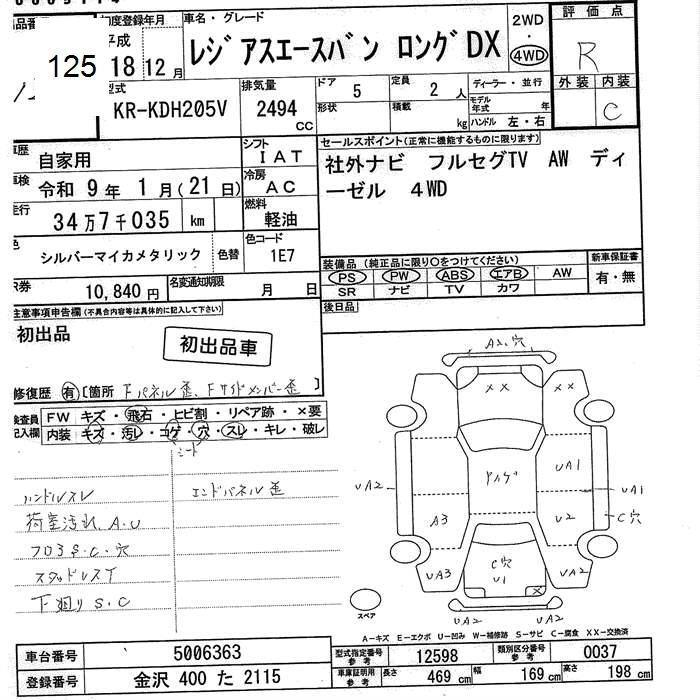 125
初度登録年月
平成
18 12月
車名・グレード
レジアスエースバン ロングDX
2WD
・
4WD
評価点
R
外装 内装
C
型式
KR-KDH205V
排気量
2494
CC
ドア 5
形状
定員 2 人
積載 kg
ディーラー・並行
モデル年式 年
ハンドル 左・右
車歴 自家用
シフト IAT
車検 令和 9年 1月(21日)
冷房 AC
走行 34万7千035 km
燃料 軽油
色 シルバーマイカメタリック 色替
色コード 1E7
R券 10,840円
名変通知期限 月 日
セールスポイント(正常に機能するものに限ります)
社外ナビ フルセグTV AW ディ
ーゼル 4WD
装備品(純正品に限り○をつけてください)
PS PW ABS エアB AW
SR ナビ TV カワ
新車保証書
有・無
後日品
注意事項申告欄(不具合内容等は具体的に記入して下さい)
初出品
初出品車
修復歴 有 [箇所 Fパネル歪、Fサイドメンバー歪]
検査員記入欄
FW キズ・飛石・ヒビ割・リペア跡・×要
内装 キズ・汚レ・コゲ・穴・スレ・キレ・破レ
シート
ハンドルスレ
エンドパネル歪
荷室汚れ、A.U
フロアS.C.穴
スタッドレスT
下廻りS.C
A2,穴
XX
XX
UA2
UA1
UA1
C穴
A3
U2
UA3
C穴
U1
X
UA2
UA2
UA2
スペア
A-キズ E-エクボ U-凹み W-補修跡 S-サビ C-腐食 XX-交換済
車台番号 5006363
型式指定番号 参考 12598
類別区分番号 参考 0037
登録番号 金沢 400 た 2115
車庫証明用 参考
長さ 469 cm 幅 169 cm 高さ 198 cm